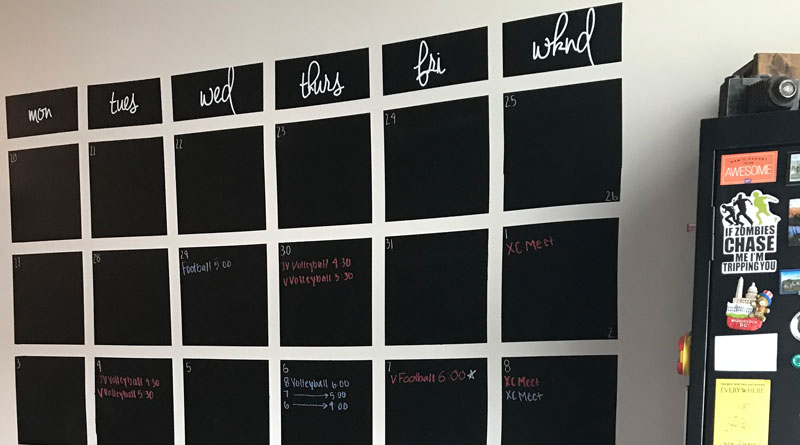 mon tues wed thurs fri wknd
20 21 22 23 24 25
26
27 28 29 30 31 1
Football 5:00
JV Volleyball 4:30
V Volleyball 5:30
XC Meet
2
3 4 5 6 7 8
JV Volleyball 4:30
V Volleyball 5:30
8 Volleyball 6:00
7 → 5:00
6 → 4:00
V Football 6:00
XC Meet
XC Meet
AWESOME
IF ZOMBIES
CHASE
ME I'M
TRIPPING YOU
WASHINGTON
D.C.